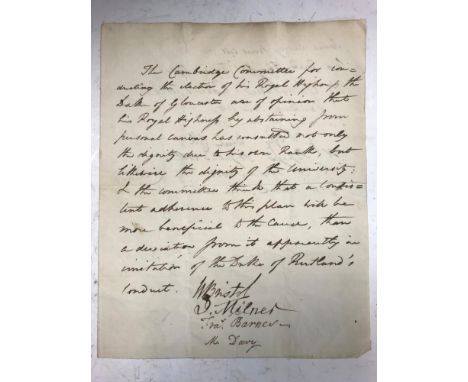 The Cambridge Committee for con-
ducting the election of his Royal Highness the
Duke of Gloucester are of opinion that
his Royal Highness by abstaining from
personal canvass has consulted not only
the dignity due to his own Rank, but
likewise the dignity of the University;
& the committee think that a consis-
tent adherence to this plan will be
more beneficial to the Cause, than
a deviation from it apparently in
imitation of the Duke of Rutland's
Conduct.
W Bristol
I. Milner
Fras. Barnes
M. Davy